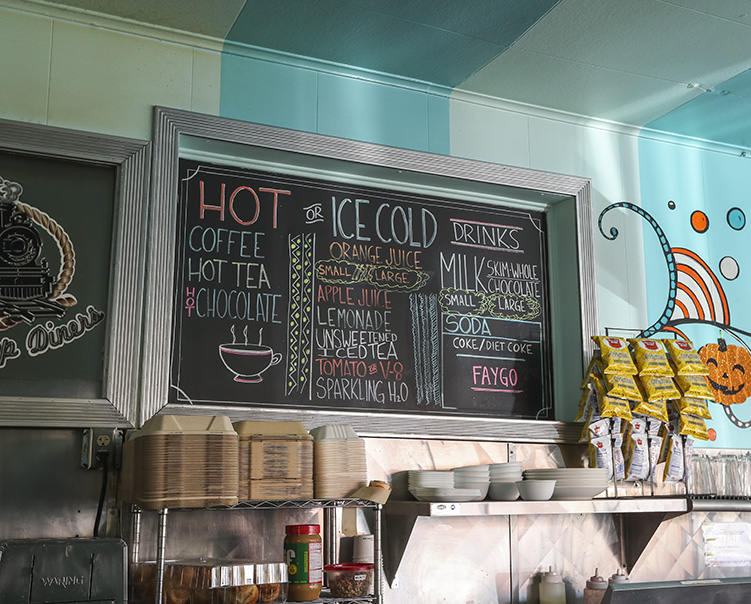 HOT OR ICE COLD
DRINKS
COFFEE
HOT TEA
HOT CHOCOLATE
ORANGE JUICE
SMALL LARGE
APPLE JUICE
LEMONADE
UNSWEETENED
ICED TEA
TOMATO OR V-8
SPARKLING H2O
MILK SKIM-WHOLE
CHOCOLATE
SMALL LARGE
SODA
COKE/DIET COKE
FAYGO
Diners
WARING